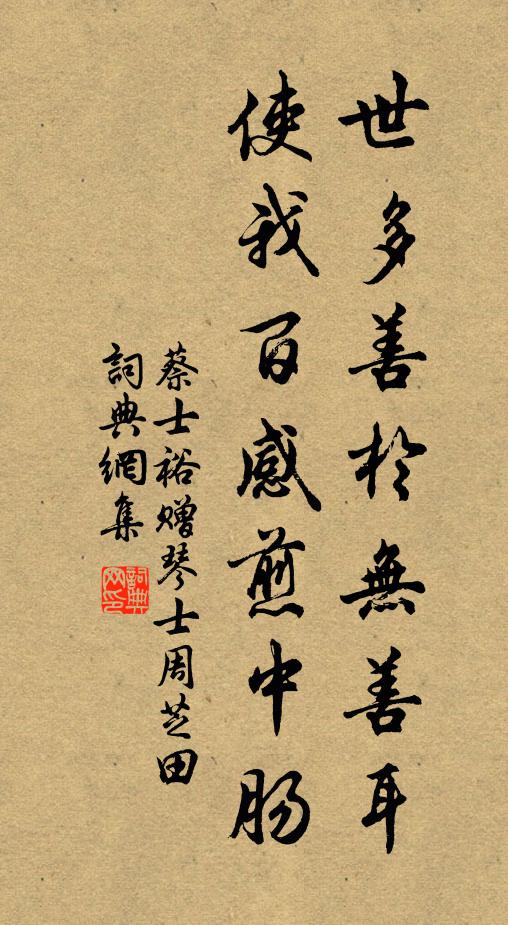 世多善於無善耳
使我百感煎中肠
蔡士裕赠琴士周芝田
詞典網集
詞典网印